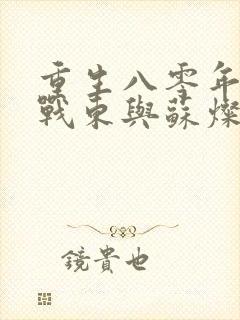 重生八零年
戰東與蘇燦
鏡貴也